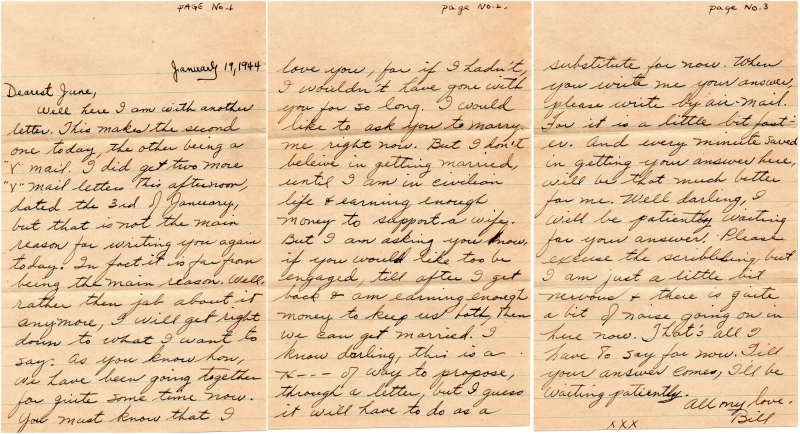 PAGE No. 1
January 19, 1944
Dearest June,
Well here I am with another
letter. This makes the second
one today, the other being a
"V" mail. I did get two more
"V" mail letters this afternoon,
dated the 3rd of January,
but that is not the main
reason for writing you again
today. In fact it is far from
being the main reason. Well,
rather then jab about it
anymore, I will get right
down to what I want to
say. As you know hon,
we have been going together
for quite some time now.
You must know that I
page No. 2.
love you, for if I hadn't,
I wouldn't have gone with
you for so long. I would
like to ask you to marry
me right now. But I don't
beleive in getting married,
until I am in civilion
life & earning enough
money to support a wife.
But I am asking you know,
if you would like too be
engaged, till after I get
back & am earning enough
money to keep us both, then
we can get married. I
know darling, this is a
H--- of way to propose,
through a letter, but I guess
it will have to do as a
page No. 3
substitute for now. When
you write me your answer,
please write by air-mail.
For it is a little bit fast-
er. And every minute saved
in getting your answer here,
will be that much better
for me. Well darling, I
will be patiently waiting
for your answer. Please
excuse the scribbling but
I am just a little bit
nervous & there is quite
a bit of noise going on in
here now. That's all I
have to say for now. Till
your answer comes, I'll be
waiting patiently.
All my love.
Bill
XXX